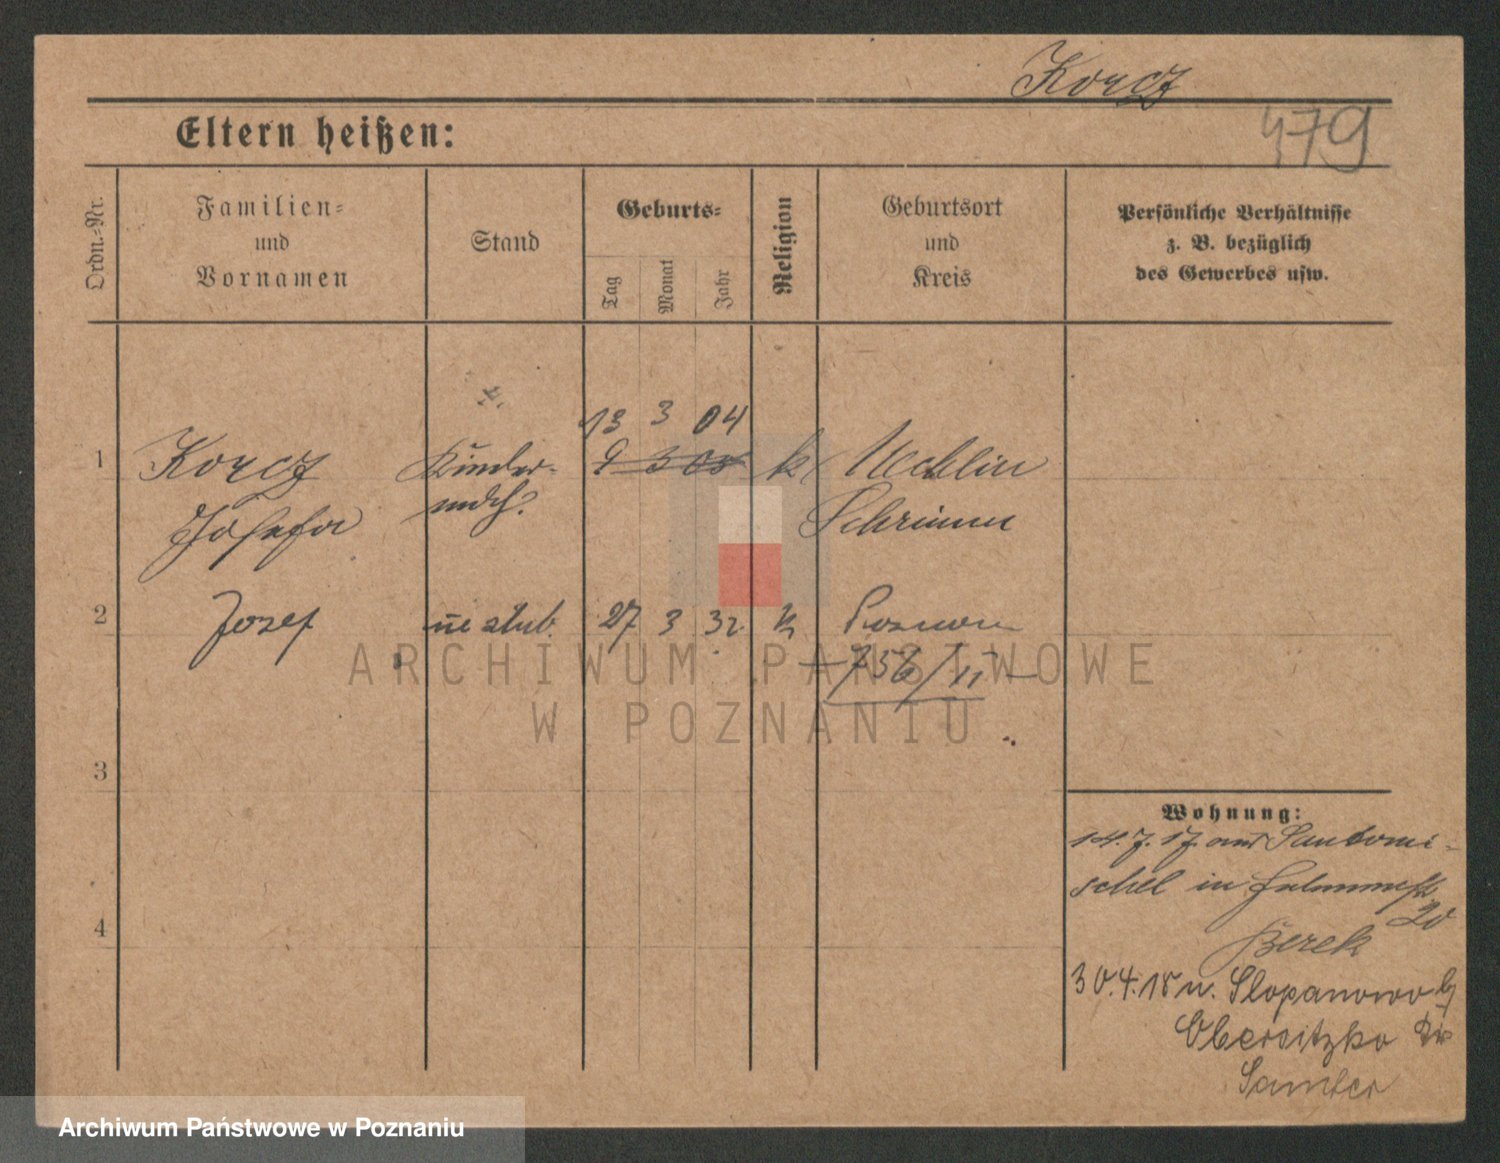 Korcz
Eltern heißen:
479
Ordn.-Nr.
Familien-
und
Vornamen
Stand
Geburts-
Tag
Monat
Jahr
Religion
Geburtsort
und
Kreis
Persönliche Verhältnisse
z. B. bezüglich
des Gewerbes usw.
13 3 04
1 Korcz Kinder- 9 3 05 k Mechlin
Josefa mdch. Schrimm
2 Josef nieślub. 27 3 32 k Poznań
756/II
ARCHIWUM PAŃSTWOWE
W POZNANIU
3
4
Wohnung:
14.7.17. aus Santomi-
schel in
20
Berek
30.4.18 n. Slopanowo b/
Obersitzko Kr
Samter
Archiwum Państwowe w Poznaniu